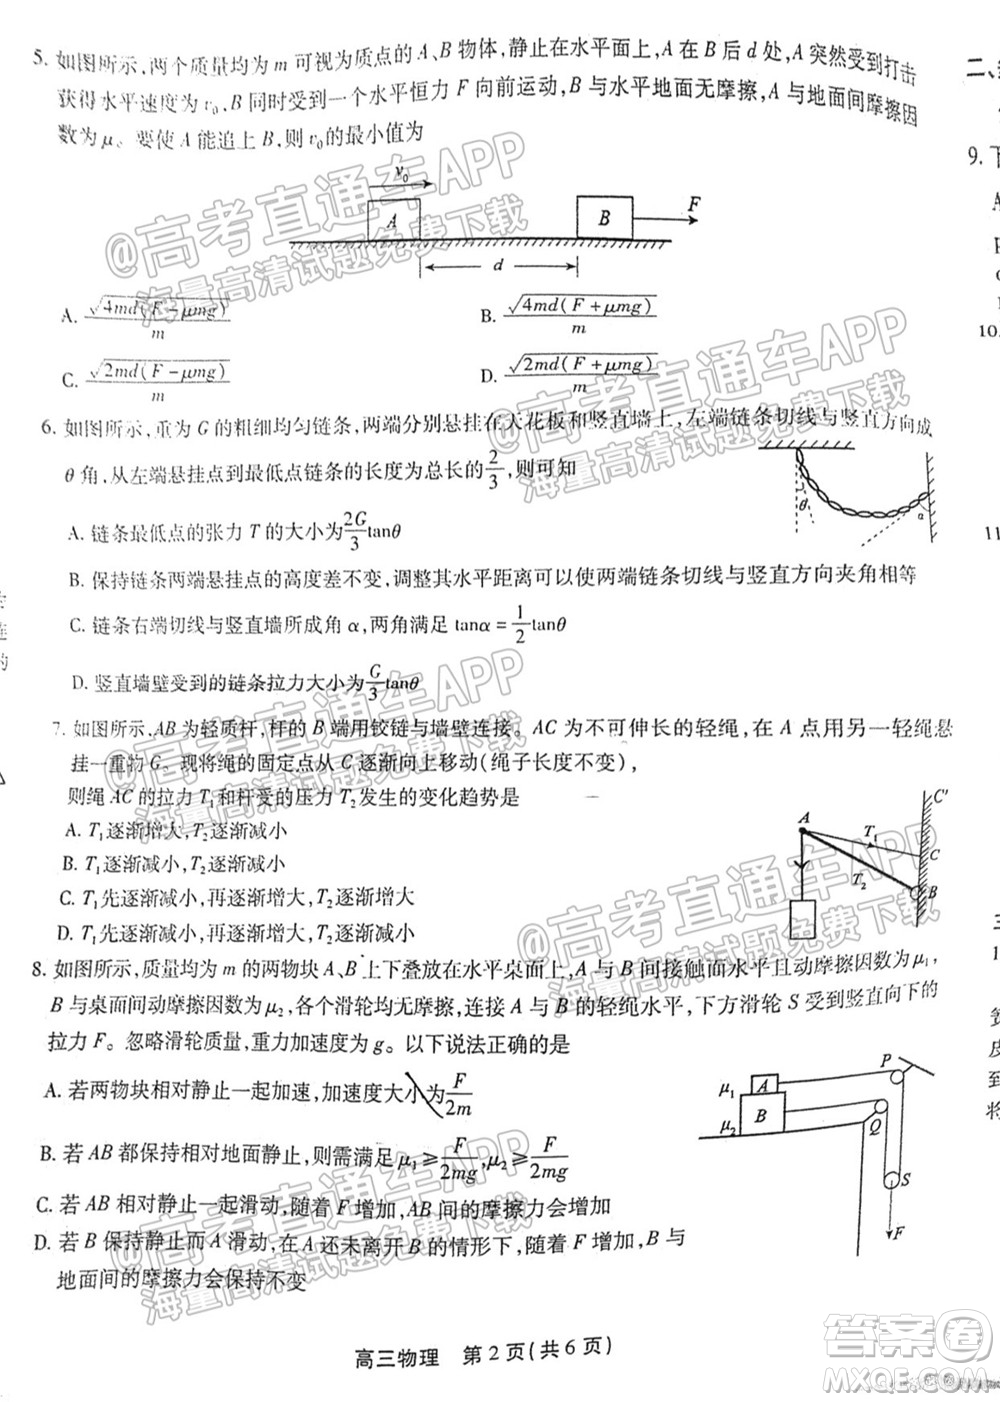 5. 如图所示,两个质量均为 m 可视为质点的 A、B 物体,静止在水平面上,A 在 B 后 d 处,A 突然受到打击
获得水平速度为 v₀,B 同时受到一个水平恒力 F 向前运动,B 与水平地面无摩擦,A 与地面间摩擦因
数为 μ。要使 A 能追上 B,则 v₀的最小值为
v₀
A
B
F
d
A. √4md(F－μmg)/m
B. √4md(F＋μmg)/m
C. √2md(F－μmg)/m
D. √2md(F＋μmg)/m
6. 如图所示,重为 G 的粗细均匀链条,两端分别悬挂在天花板和竖直墙上,左端链条切线与竖直方向成
θ 角,从左端悬挂点到最低点链条的长度为总长的2/3,则可知
θ
α
A. 链条最低点的张力 T 的大小为2G/3 tanθ
B. 保持链条两端悬挂点的高度不变,调整其水平距离可以使两端链条切线与竖直方向夹角相等
C. 链条右端切线与竖直墙所成角 α,两角满足 tanα＝1/2 tanθ
D. 竖直墙壁受到的链条拉力大小为G/3 tanθ
7. 如图所示,AB 为轻质杆,杆的 B 端用铰链与墙壁连接。AC 为不可伸长的轻绳,在 A 点用另一轻绳悬
挂一重物 G。现将绳的固定点从 C 逐渐向上移动(绳子长度不变),
则绳 AC 的拉力 T₁和杆受的压力 T₂发生的变化趋势是
A. T₁逐渐增大,T₂逐渐减小
B. T₁逐渐减小,T₂逐渐减小
C. T₁先逐渐减小,再逐渐增大,T₂逐渐增大
D. T₁先逐渐减小,再逐渐增大,T₂逐渐减小
A
T₁
T₂
C′
C
B
8. 如图所示,质量均为 m 的两物块 A、B 上下叠放在水平桌面上,A 与 B 间接触面水平且动摩擦因数为 μ₁,
B 与桌面间动摩擦因数为 μ₂,各个滑轮均无摩擦,连接 A 与 B 的轻绳水平,下方滑轮 S 受到竖直向下的
拉力 F。忽略滑轮质量,重力加速度为 g。以下说法正确的是
A. 若两物块相对静止一起加速,加速度大小为F/2m
B. 若 AB 都保持相对地面静止,则需满足 μ₁≥F/2mg,μ₂≥F/2mg
C. 若 AB 相对静止一起滑动,随着 F 增加,AB 间的摩擦力会增加
D. 若 B 保持静止而 A 滑动,在 A 还未离开 B 的情形下,随着 F 增加,B 与
地面间的摩擦力会保持不变
μ₁
A
μ₂
B
P
Q
S
F
高三物理 第 2 页(共 6 页)
二、
9. 下
10.
11
@高考直通车APP
海量高清试题免费下载
@高考直通车APP
海量高清试题免费下载
@高考直通车APP
海量高清试题免费下载
@高考直通车APP
海量高清试题免费下载
@高考直通车APP
海量高清试题免费下载
答案卷
MXQE.COM